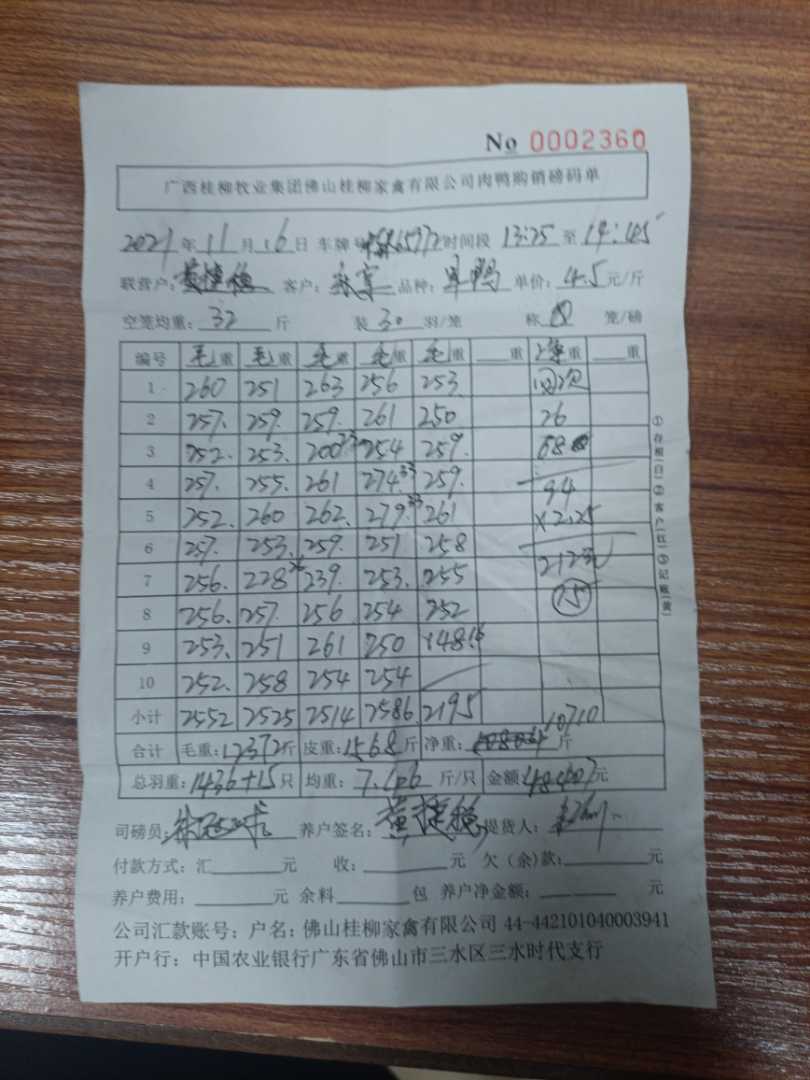 No 0002360
广西桂柳牧业集团佛山桂柳家禽有限公司肉鸭购销磅码单
2021年11月16日 车牌号 时间段 13:25 至 14:45
联营户: 黄健稳 客户: 品种: 单鸭 单价: 4.5元/斤
空笼均重: 32 斤 装 30 羽/笼 称 四 笼/磅
编号 毛重 毛重 毛重 毛重 毛重 重 重 重
1 260 251 263 256 253
2 257. 259. 259. 261 250 26
3 252. 253. 200 23 254 259. 68
4 257. 255. 261 274 33 259. 94
5 252. 260 262. 279. 33 261 ×2.25
6 257. 253. 259. 251 258 212元
7 256. 228 239. 253. 255
8 256. 257. 256 254 252
9 253. 251 261 250 148
10 252. 258 254 254
小计 2552 2525 2514 2586 2195 10710
合计 毛重: 12372斤 皮重: 1568斤 净重: 斤
总羽重: 1436+15只 均重: 斤/只 金额: 元
司磅员: 养户签名: 黄健稳 提货人:
付款方式: 汇 元 收: 元 欠(余)款: 元
养户费用: 元 余料 包 养户净金额: 元
公司汇款账号: 户名: 佛山桂柳家禽有限公司 44-442101040003941
开户行: 中国农业银行广东省佛山市三水区三水时代支行
①存根(白)②客户(红)③记账(黄)